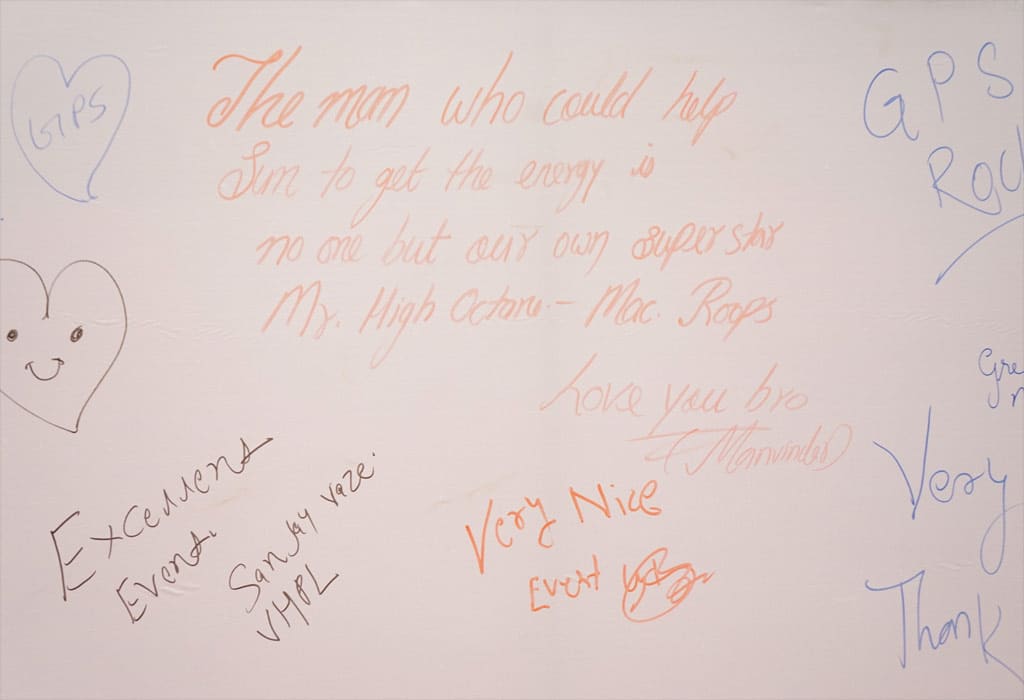 GIPS
The man who could help
Sun to get the energy is
no one but our own superstar
Mr. High Octane - Mac. Roops
Love you bro
(Manvinder)
GPS
Excellent
Event.
Sanjay vaze.
VHPL
Very Nice
Event
Very
Thank